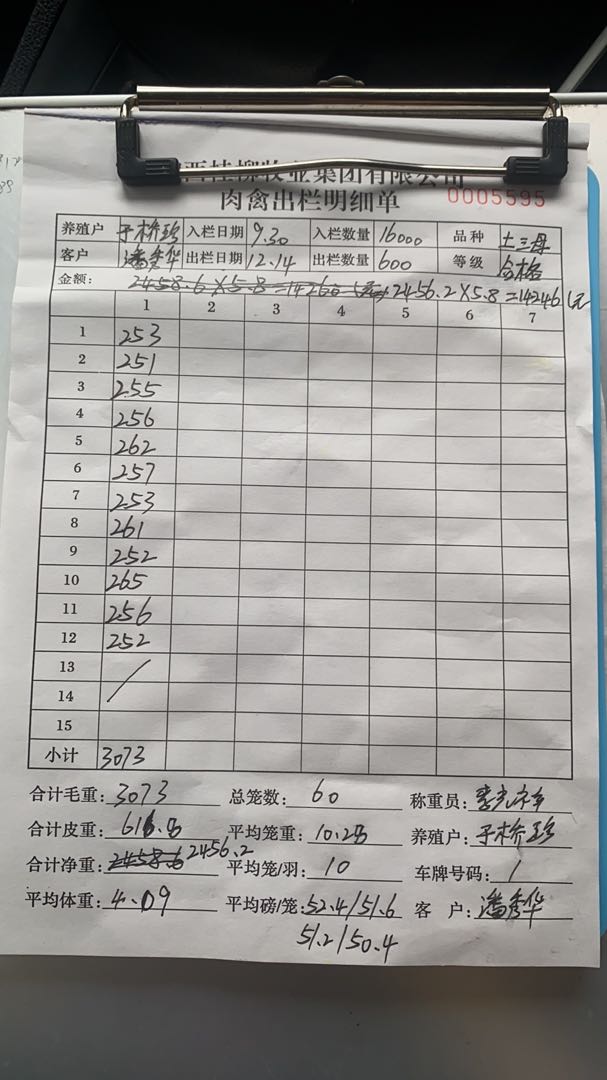 西桂柳牧业集团有限公司
肉禽出栏明细单 0005595
养殖户 于桥珍 入栏日期 9.30 入栏数量 16000 品种 土三母
客户 潘秀华 出栏日期 12.14 出栏数量 600 等级 合格
金额: 2458.6×5.8=14260 2456.2×5.8=14246元
1 2 3 4 5 6 7
1 253
2 251
3 255
4 256
5 262
6 257
7 253
8 261
9 252
10 265
11 256
12 252
13
14
15
小计 3073
合计毛重: 3073 总笼数: 60 称重员:
合计皮重: 616.8 平均笼重: 10.28 养殖户: 于桥珍
合计净重: 2458.6 2456.2 平均笼/羽: 10 车牌号码: 1
平均体重: 4.09 平均磅/笼: 52.4/51.6 客 户: 潘秀华
51.2/50.4